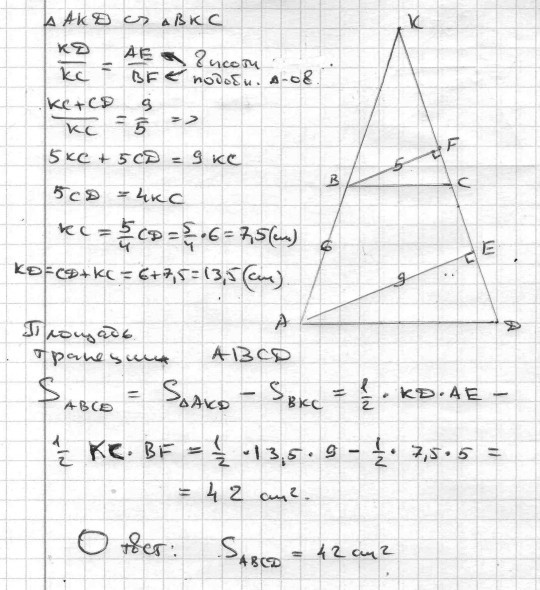 △AKD ∽ △BKC
KD/KC = AE/BF высоты подобн. Δ-ов.
KC+CD/KC = 9/5 =>
5KC + 5CD = 9KC
5CD = 4KC
KC = 5/4 CD = 5/4 · 6 = 7,5 (см)
KD = CD + KC = 6 + 7,5 = 13,5 (см)
K
F
B
5
C
6
E
9
A
D
Площадь
трапеции ABCD
S ABCD = S △AKD - S BKC = 1/2 · KD · AE -
1/2 KC · BF = 1/2 · 13,5 · 9 - 1/2 · 7,5 · 5 =
= 42 см².
Ответ: S ABCD = 42 см²